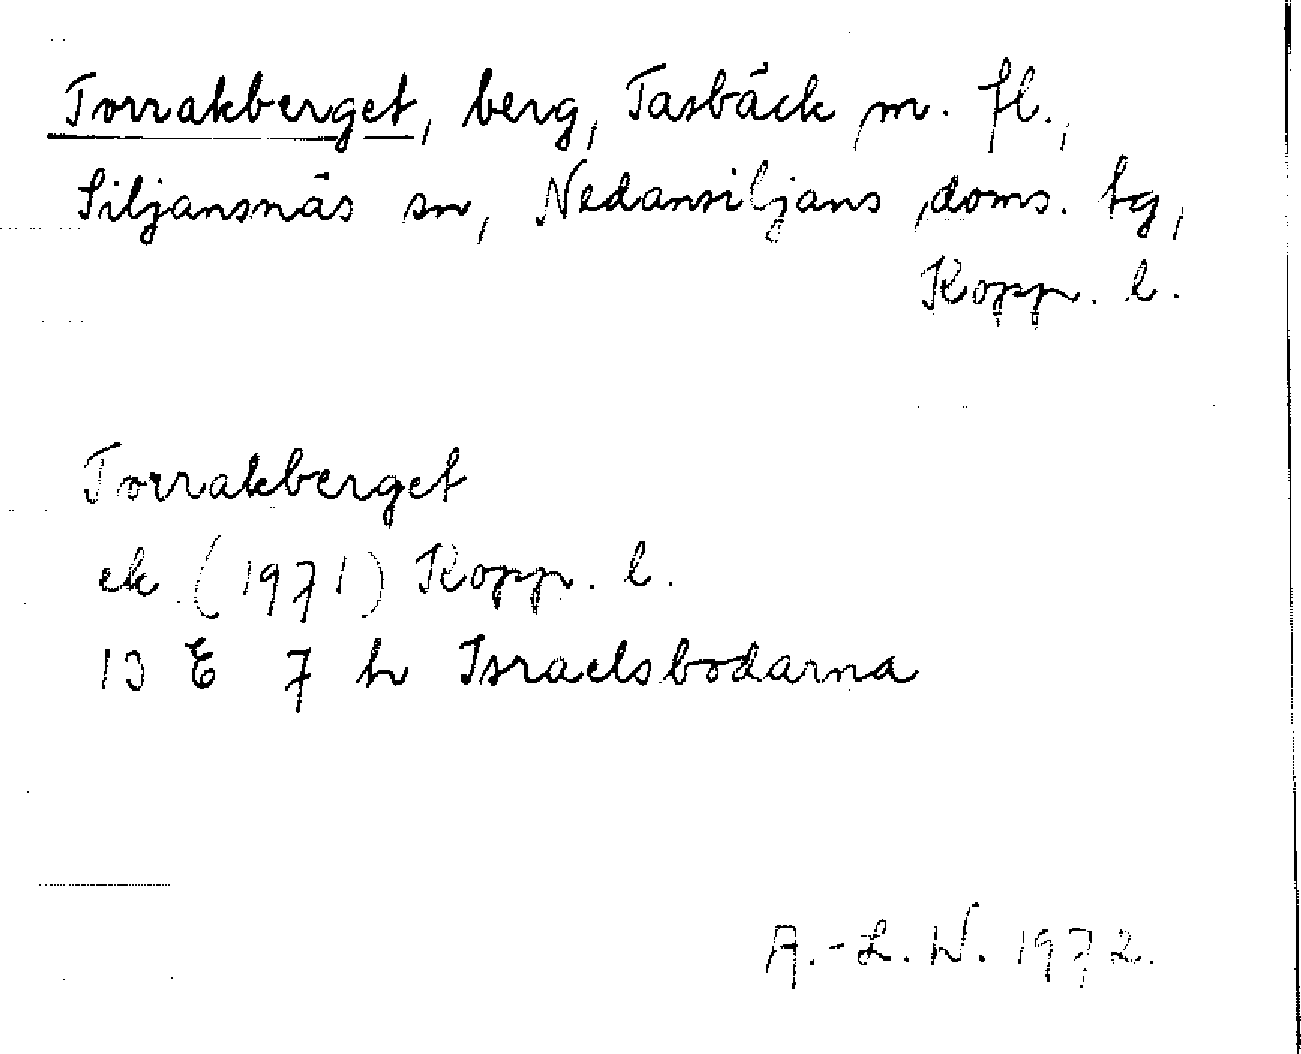 Torrakberget, berg, Tasbäck m. fl.,
Siljansnäs sn, Nedansiljans doms. tg,
Kopp. l.
Torrakberget
ek (1971) Kopp. l.
13 E 7 h Israelsbodarna
A.-L. W. 1972.